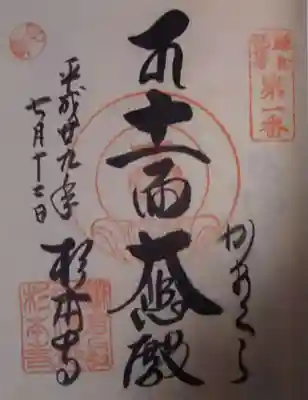 第一番
かまくら
十一面大悲殿
平成廿九年
七月十七日
杉本寺